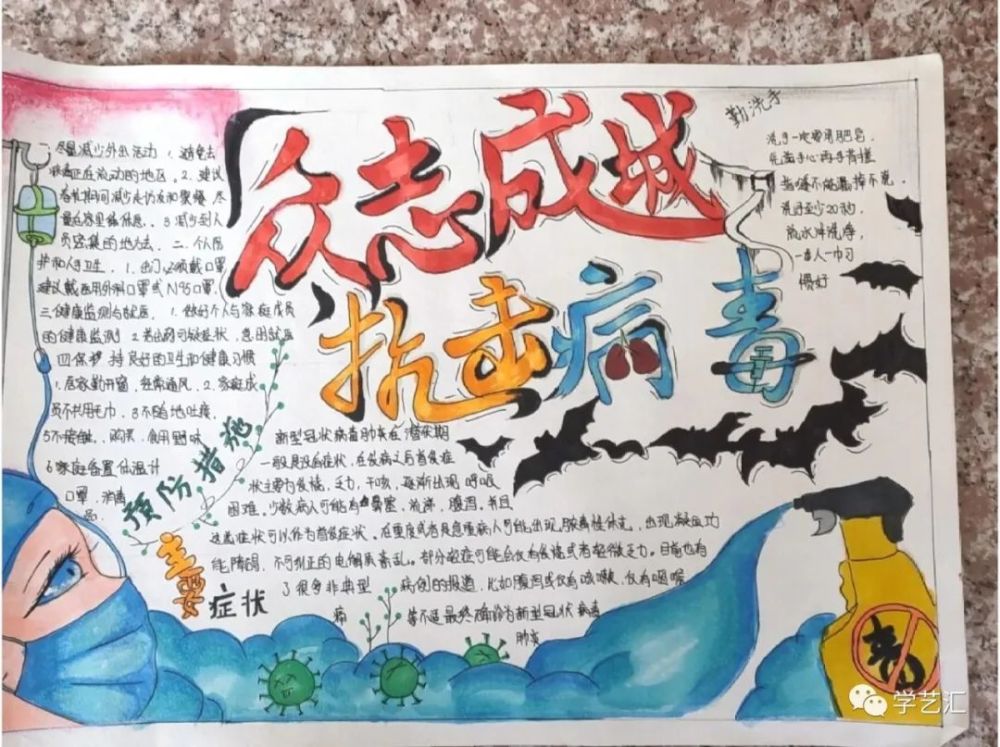 众志成城
抗击病毒
勤洗手
洗手一定要用肥皂,
先画手心再手背搓
指缝不能漏掉不完
洗手至少20秒,
流水冲洗净,
一人一巾习
惯好
一尽量减少外出活动 1. 避免去
疾病正在流动的地区。2. 建议
春节期间减少走访友和聚餐 尽
量在家里休息。3 减少到人
员密集的地方去. 二. 个人防
护和人手卫生. 1. 出门必须戴口罩
建议戴医用外科口罩或N95口罩.
三健康监测与就医. 1. 做好个人与家庭成员
的健康监测 2 若出现可疑症状, 急因就医
四 保护 持良好的卫生和健康习惯
1. 居家勤开窗, 经常通风. 2. 家庭成
员不共用毛巾. 3 不随地吐痰,
5不接触、购买、食用野味
6家庭备置体温计
口罩, 消毒
品.
预防措施
新型冠状病毒肺炎在潜伏期
一般是没有症状, 在发病之后首发症
状主要为发烧, 乏力, 干咳, 逐渐出现 呼吸
困难. 少数病人可能有鼻塞, 流涕, 腹泻. 并且
这些症状可以作为首发症状. 在重度或者是危重病人可能出现脓毒性休克, 出现凝血功
能障碍, 不可纠正的电解质紊乱. 部分轻症可能会仅有发烧或者轻微乏力. 目前也有
了很多非典型 病例的报道, 比如腹泻或仅有咳嗽, 仅有咽喉
痛 等不适最终确诊为新型冠状病毒
肺炎
主要症状
毒
学艺汇